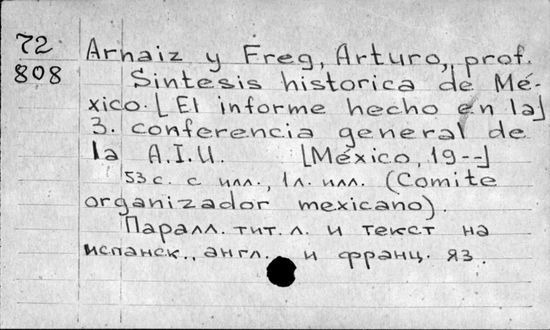 72
808
Arnaiz y Freg, Arturo, prof.
Sintesis historica de Mé-
xico. [El informe hecho en la]
3. conferencia general de
la A.I.U. [México, 19--]
53 с. с илл., 1 л. илл. (Comite
organizador mexicano).
Паралл. тит. л. и текст на
испанск., англ. и франц. яз.